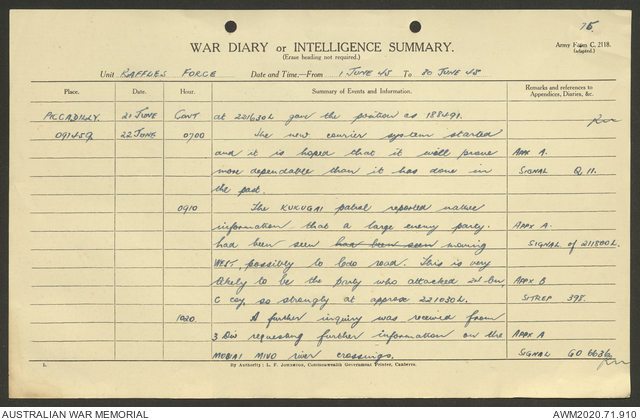 75.
WAR DIARY or INTELLIGENCE SUMMARY.
(Erase heading not required.)
Army Form C. 2118.
(adapted.)
Unit RAFFLES FORCE Date and Time—From 1 JUNE 45 To 30 JUNE 45
Place. Date. Hour. Summary of Events and Information. Remarks and references to Appendices, Diaries, &c.
PICCADILLY. 21 JUNE CONT at 221630L gave the position as 188491.
091459 22 JUNE 0700 The new courier system started
and it is hoped that it will prove APPX A.
more dependable than it has done in SIGNAL Q 11.
the past.
0910 The KUKUGAI patrol reported native
information that a large enemy party. APPX A.
had been seen had been seen moving SIGNAL of 211800L.
WEST, possibly to Commando road. This is very
likely to be the party who attacked 24 Bn APPX B
C coy so strongly at approx 221030L. SITREP 398.
1020 A further inquiry was received from
3 Div requesting further information on the APPX A
MOBIAI MIVO river crossings. SIGNAL GO 6636
L. By Authority: L. F. Johnston, Commonwealth Government Printer, Canberra.
AUSTRALIAN WAR MEMORIAL
AWM2020.71.910